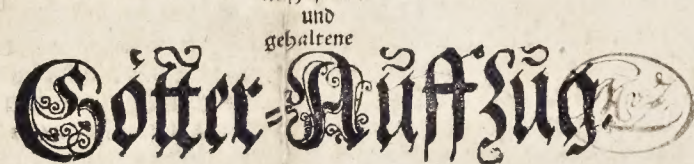 und
gehaltene
Götter-Auffzug.